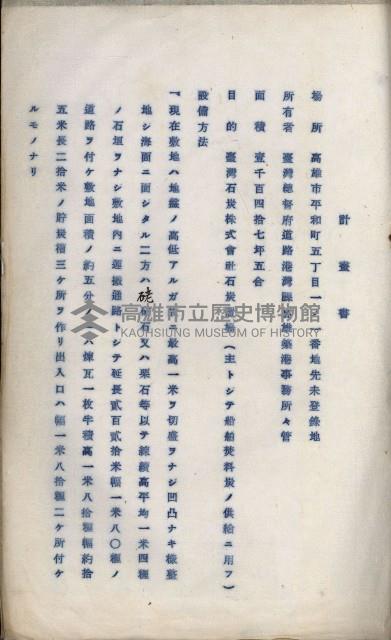 計畫書
場所 高雄市平和町五丁目一ノ 番地先未登錄地
所有者 臺灣總督府道路港灣課高雄築港事務所々管
面積 壹千百四拾七坪五合
目的 臺灣石炭株式會社石炭 場(主トシテ船舶焚料炭ノ供給ニ用フ)
設備方法
一、現在敷地ハ地盤ノ高低アルガ故ニ最高一米ヲ切盛ヲナシ凹凸ナキ樣整
地シ海面ニ面シタル二方ハ硓 石又ハ栗石等ヲ以テ線續高平均一米四糎
ノ石垣ヲナシ敷地內ニ運搬通路トシテ延長貳百貳拾米幅一米八〇糎ノ
道路ヲ付ケ敷地面積ノ約五分ノ ハ煉瓦一枚半積高一米八拾糎幅約拾
五米長二拾米ノ貯炭場三ケ所ヲ作リ出入口ハ幅一米八拾糎二ケ所付ケ
ルモノナリ
高雄市立歷史博物館
KAOHSIUNG MUSEUM OF HISTORY